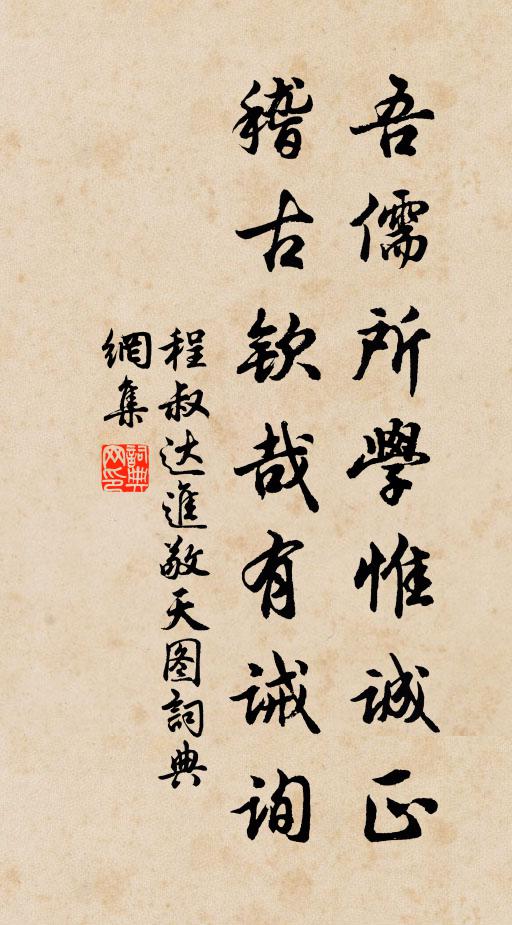 吾儒所學惟誠正
稽古欽哉有誡詢
程叔达進敬天图詞典
網集
詞典网印